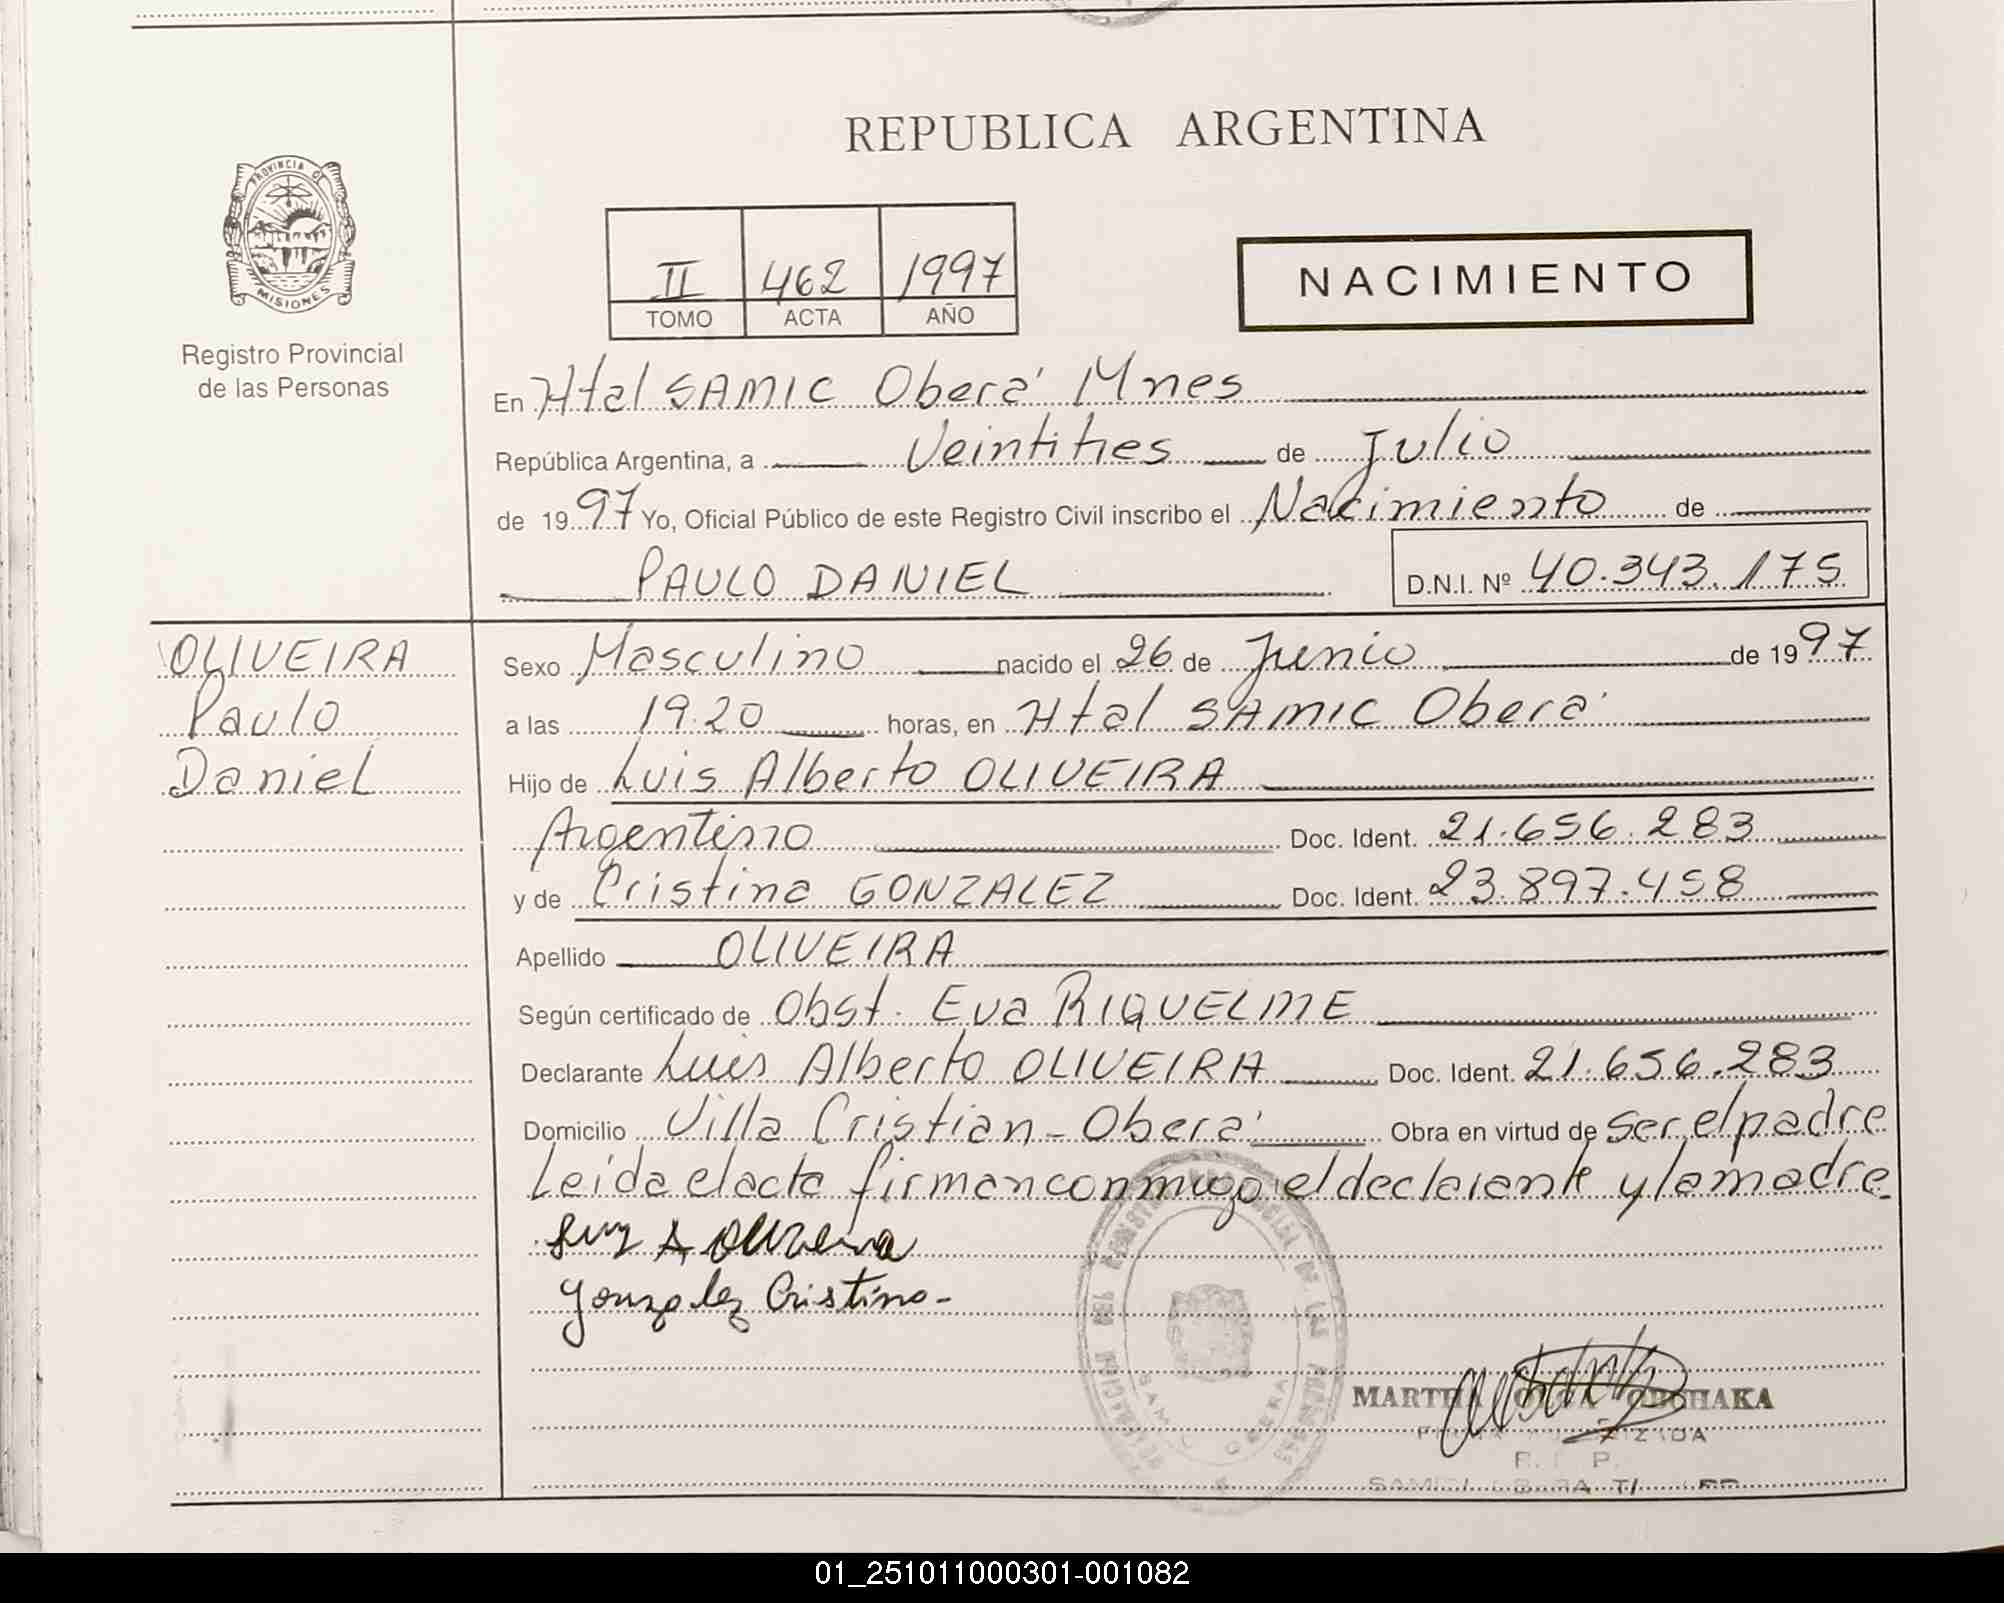 REPUBLICA ARGENTINA
PROVINCIA DE
MISIONES
Registro Provincial
de las Personas
II 462 1997
TOMO ACTA AÑO
NACIMIENTO
En Htal SAMIC Oberá Mnes
República Argentina, a Veintitres de Julio
de 1997 Yo, Oficial Público de este Registro Civil inscribo el Nacimiento de
PAULO DANIEL D.N.I. Nº 40.343.175
OLIVEIRA
Paulo
Daniel
Sexo Masculino nacido el 26 de Junio de 1997
a las 19.20 horas, en Htal SAMIC Oberá
Hijo de Luis Alberto OLIVEIRA
Argentino Doc. Ident. 21.656.283
y de Cristina GONZALEZ Doc. Ident. 23.897.458
Apellido OLIVEIRA
Según certificado de Obst. Eva RIQUELME
Declarante Luis Alberto OLIVEIRA Doc. Ident. 21.656.283
Domicilio Villa Cristian - Oberá Obra en virtud de ser el padre
Leída el acta firman conmigo el declarante y la madre.
Luiz A Oliveira
Gonzalez Cristina-
MARTHA OLGA
R. P.
01_251011000301-001082